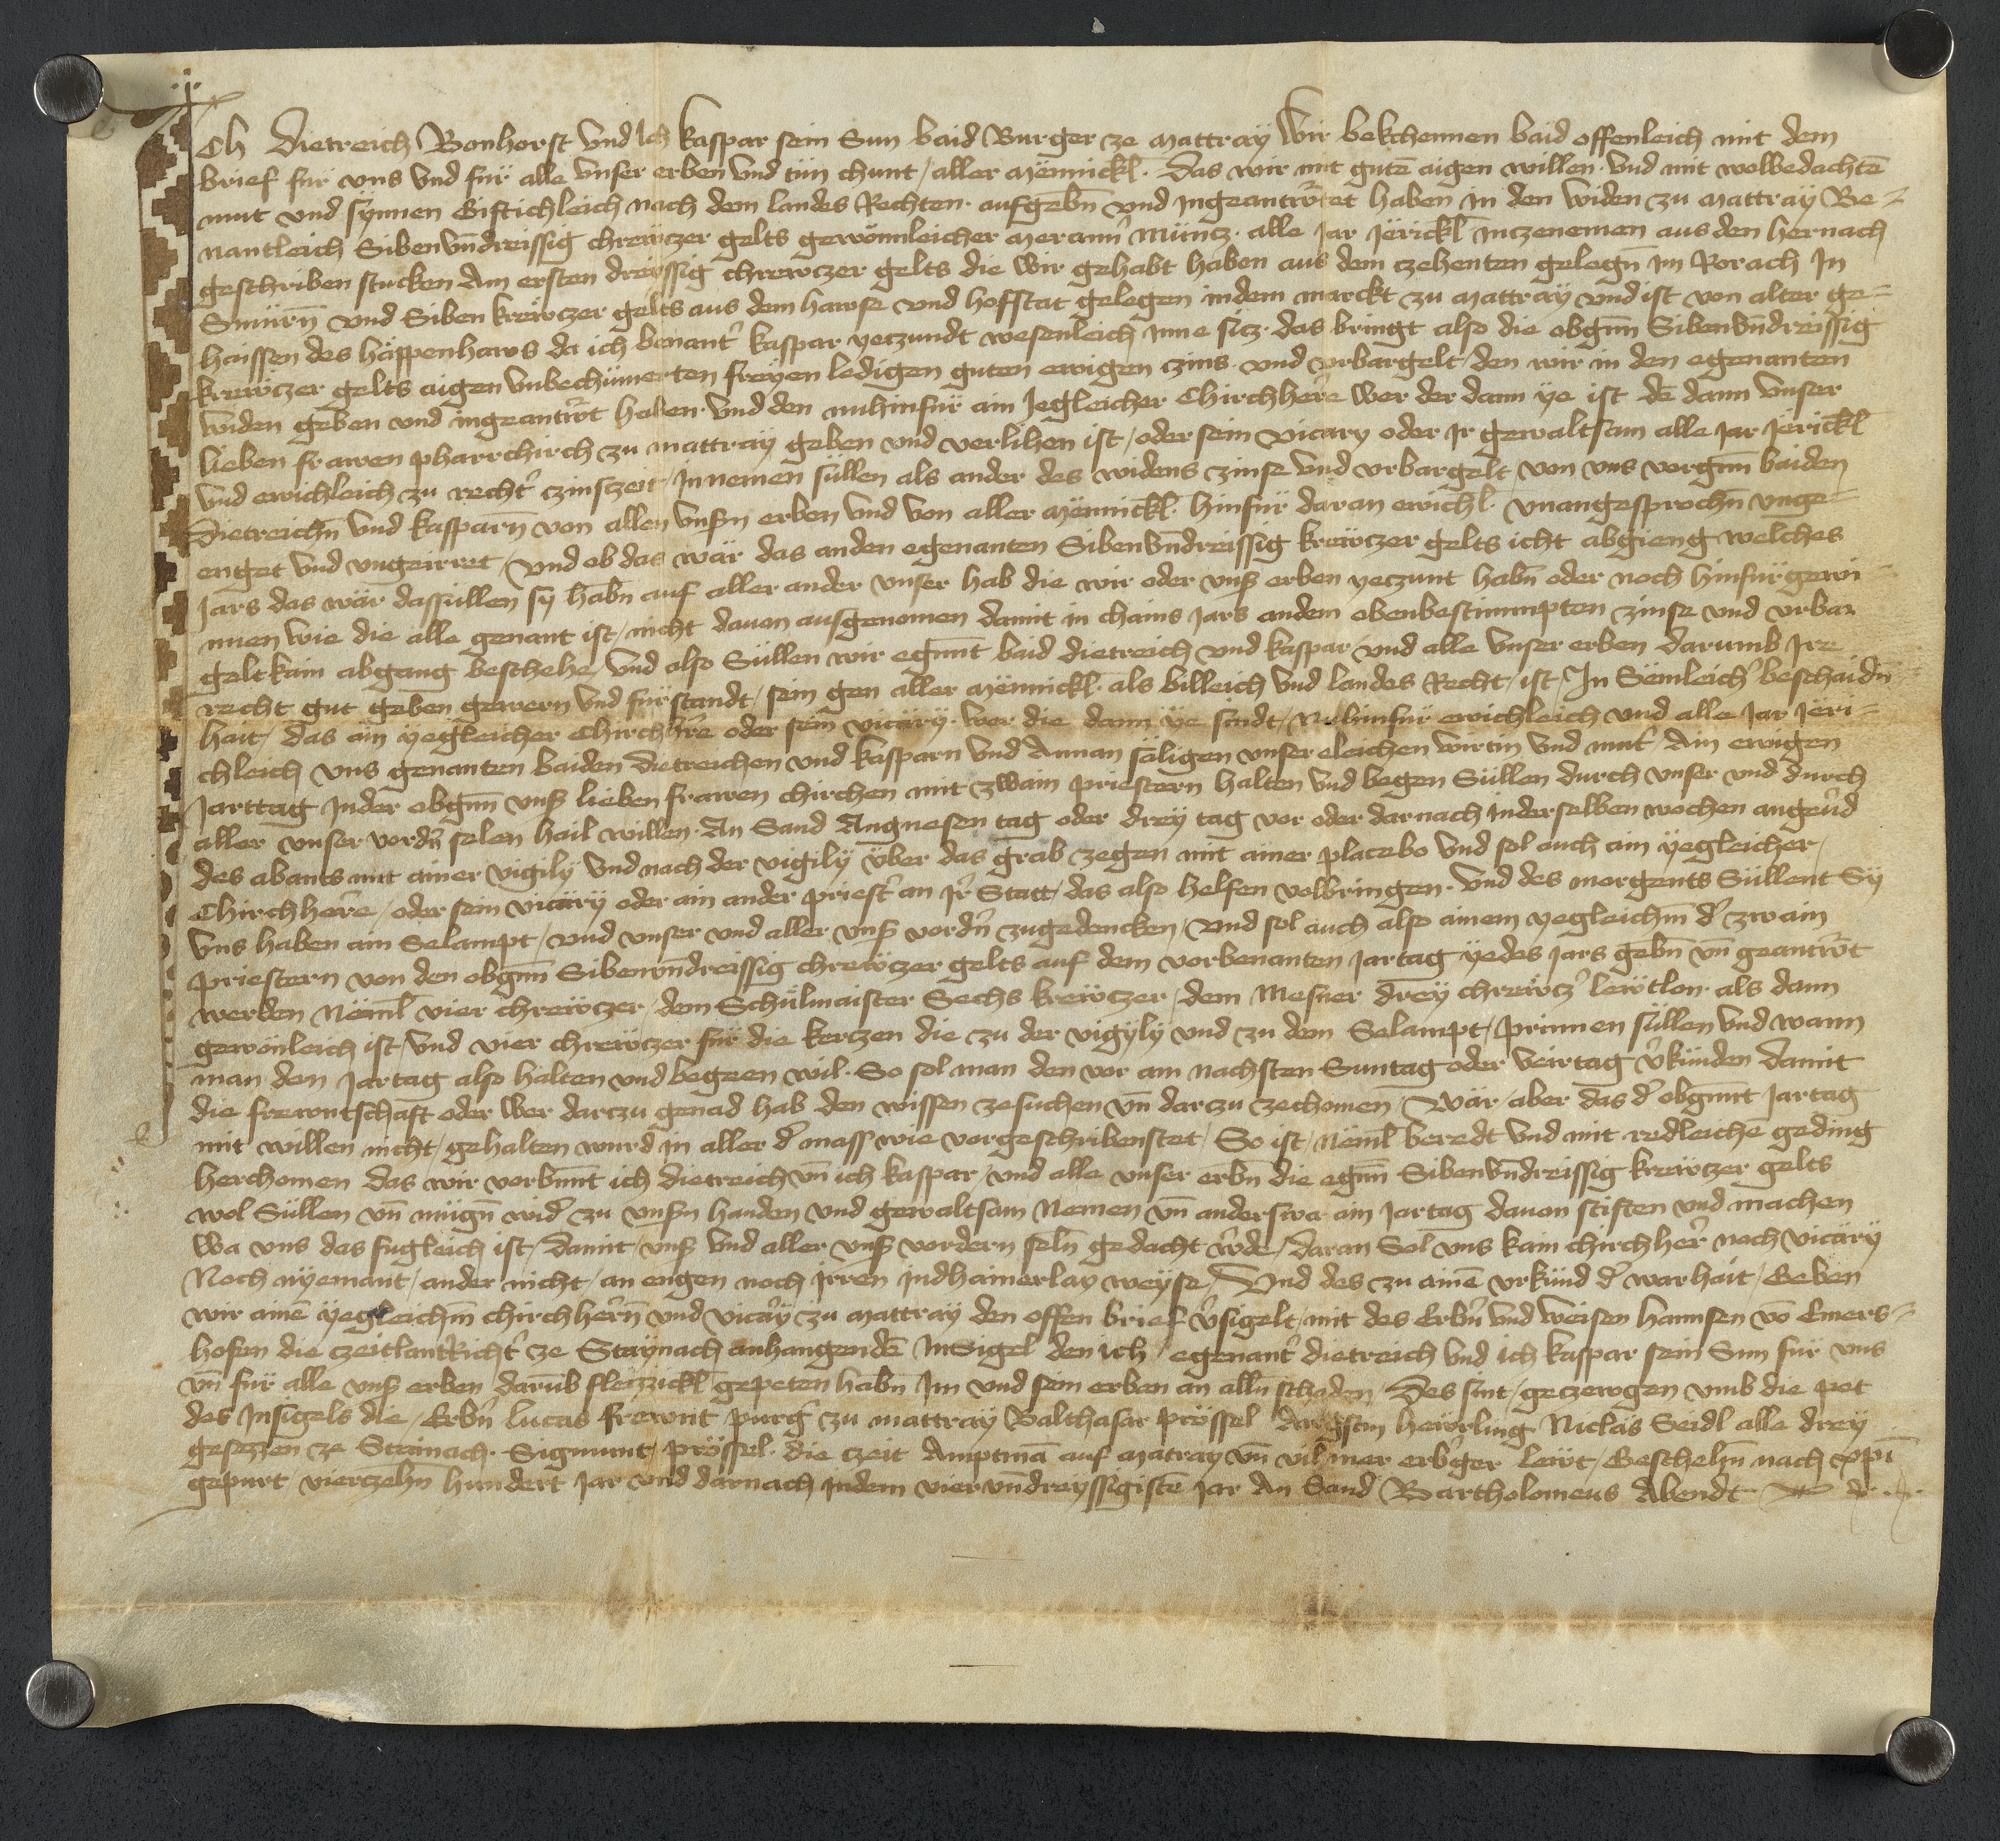 Ich Dietreich Bonhorst vnd Ich kaspar sein Sun baid Burger ze Mattraÿ Wir bekchennen baid offenleich mit dem
brief für vns vnd für alle vnser erben vnd tün chunt / aller mënnickl. Das wir mit gutē aigen willen. vnd mit wolbedachtē
mut vnd synnen Giftichleich nach dem landes Rechten. aufgebn̄ vnd Ingeantwͦrtet haben in den widen zu Mattray Be-
nantleich Sibenvn̄dreissig chrewczer gelts gewönnleicher Merann̉ Müncz. alle Jar Jërickl Inczenemen aus den hernach
geschriben stucken Am ersten dreyssig chrewczer gelts die Wir gehabt haben aus dem czehenten gelegn̄ Im Rorach In
Smürn̄ vnd Siben krewczer gelts aus dem hawse vnd hofstat gelegen indem marckt zu Mattraÿ vnd ist von alter ge-
haissen des häppenhaws da ich benant̉ kaspar yeczundt wesenleich Inne sicz. das bringt also die obgnn̄ Sibenvn̄dreissig
krewczer gelts aigen vnbechümerten freÿen ledigen guten ewigen czins. vnd vrbargelt / den wir in den egenanten
widen geben vnd ingeantwͦrt haben. vnd den nuhinfür ain Jegleicher Chirchhere Wer der dann ye ist dē dann vnser
lieben frawen pharrchirch zu Mattraÿ geben vnd verlihen ist / oder sein vicary oder Ir gewaltsam alle Jar Jërickl
vnd ewichleich zu recht̉ czinsczeit Innemen süllen als ander des widens zinse vnd vrbargelt / von vns vorgnn̄ baiden
Dietreichn̄ vnd kasparn̄ von allen vnsn̉ erben vnd von aller mënnickl. hinfür daran ewichl. vnangesprochn̄ vnge-
enget vnd vngeirret / vnd ob das wär das anden egenanten Sibenvn̄dreissig krewczer gelts icht abgieng welches
Jars das wär dassüllen sy habn̄ auf aller ander vnser hab die wir oder vns̉ erben yeczunt habn̄ oder noch hinfürgewi
nnen wie die alle genant ist / nicht dauon ausgenomen damit in chains Jars andem obenbestimmpten zinse vnd vrbar
gelt kain abgang beschehe / vnd also Süllen wir egnn̄t baid dietreich vnd kaspar / vnd alle vnser erben darumb Ire
recht gut geben gewern vnd fürstandt / sein gen aller mënnickl. als billeich vnd landes Recht / ist / In Sëmleich̉ beschaidn̄
hait / das ain yegleicher Chirchhre oder sein vicärÿ. wer die dann ÿe sindt / Nuhinfür ewichleich vnd alle Jar Jëri-
chleich vns genanten baiden Dietreichen vnd kasparn vnd Annan säligen vnser eleichen wirtin vnd mut̉ / Ain ewigen
Jarttag Inder obgnn̄ vns̉ lieben frawen chirchen mit zwain priestern halten vnd begen Süllen durch vnser vnd durch
aller vnser vordn̉ selen hail willen. An Sand Angnesen tag oder dreÿ tag vor oder darnach Inderselben wochen angeu̎d
des abants mit ainer vigilÿ vnd nach der vigilÿ über das grab zegen mit ainer placebo vnd sol auch ain yegleicher /
Chirchhere / oder sein vicärÿ oder ain ander priest̉ an Ir̉ Statt / das also helfen volbringen. vnd des morgents Süllent Sÿ
vns haben ain Selampt / vnd vnser vnd aller vns̉ vordn̉ zugedencken / vnd sol auch also ainem yegleichm̄ d̉ zwain
priestern von den obgnn̄ Sibenvn̄dreissig chrewczer gelts auf dem vorbenanten Jartag ÿedes Jars gebn̄ vn̄ geantwͦrt
werden Nëml vier chrewczer / dem Schülmaister Sechs krewczer / dem Mesner dreÿ chrewcz̉ lewtlon. als dann
gewönleich ist / vnd vier chrewczer für die kerczen die zu der vigÿlÿ vnd zu dem Selampt / prinnen süllen vnd wann
man den Jartag also halten vnd begeen wil. So sol man den vor am nachsten Suntag oder veirtag v̉künden damit
die frewntschaft oder wer darczu genad hab den wissen zesuchen vn̄ darczu zechomen / Wär / aber das d̉ obgnn̄t Jartag
mit willen nicht / gehalten wurd in aller d̉ mass wie vorgeschribenstet / So ist / nëml beredt vnd mit redleichē geding
herchomen das wir vorbnn̄t ich dietreich vn̄ ich kaspar / vnd alle vnser erbn̄ die egnn̄ Sibenvn̄dreissig krewczer gelts
wol Süllen vn̄ mügn̄ wid̉ zu vnsn̉ handen vnd gewaltsam Nemen vn̄ anderswa ain Jartag dauon stiften vnd machen
Wa vns das fugleich ist / damit / vns̉ vnd aller vns̉ vordern seln̄ gedacht w̉de / daran Sol vns kain chirchher̉ noch vicärÿ
Noch nyemant / ander nicht / an engen noch irren indhainerlay weyse / Vnd des zu ainē vrkünd d̉ warhait / Geben
wir ainē ÿegleichm̄ chirchhern̄ vnd vicärÿ zu Mattraÿ den offen brief v̉sigelt / mit des Erbn̉ vnd weisen hannsen vō Emers-
hofen die czeit lantricht̉ ze Staÿnach anhangendē Insigel den ich / egenant̉ dietreich vnd ich kaspar sein Sun für vns
vn̄ für alle vns̉ erben darūb fleizzickl gepeten habn̄ Im vnd sein erben an alln̄ schaden / Des sint / geczewgen vmb die pet
des Insigels die / Erbn̉ lucas frewnt purg̉ zu Mattraÿ Balthasar prössel hewrling Niclas Seidl alle dreÿ
gesezzen ze Steinach. Sigmunt prössel. die czeit Amptmā auf Matray vn̄ vil mer erbger lewt / Geschehn̄ nach xpī
gepurt vierczehn hundert Jar vnd darnach Indem viervn̄dreyssigistē Jar An Sand Bartholomeus Abendt